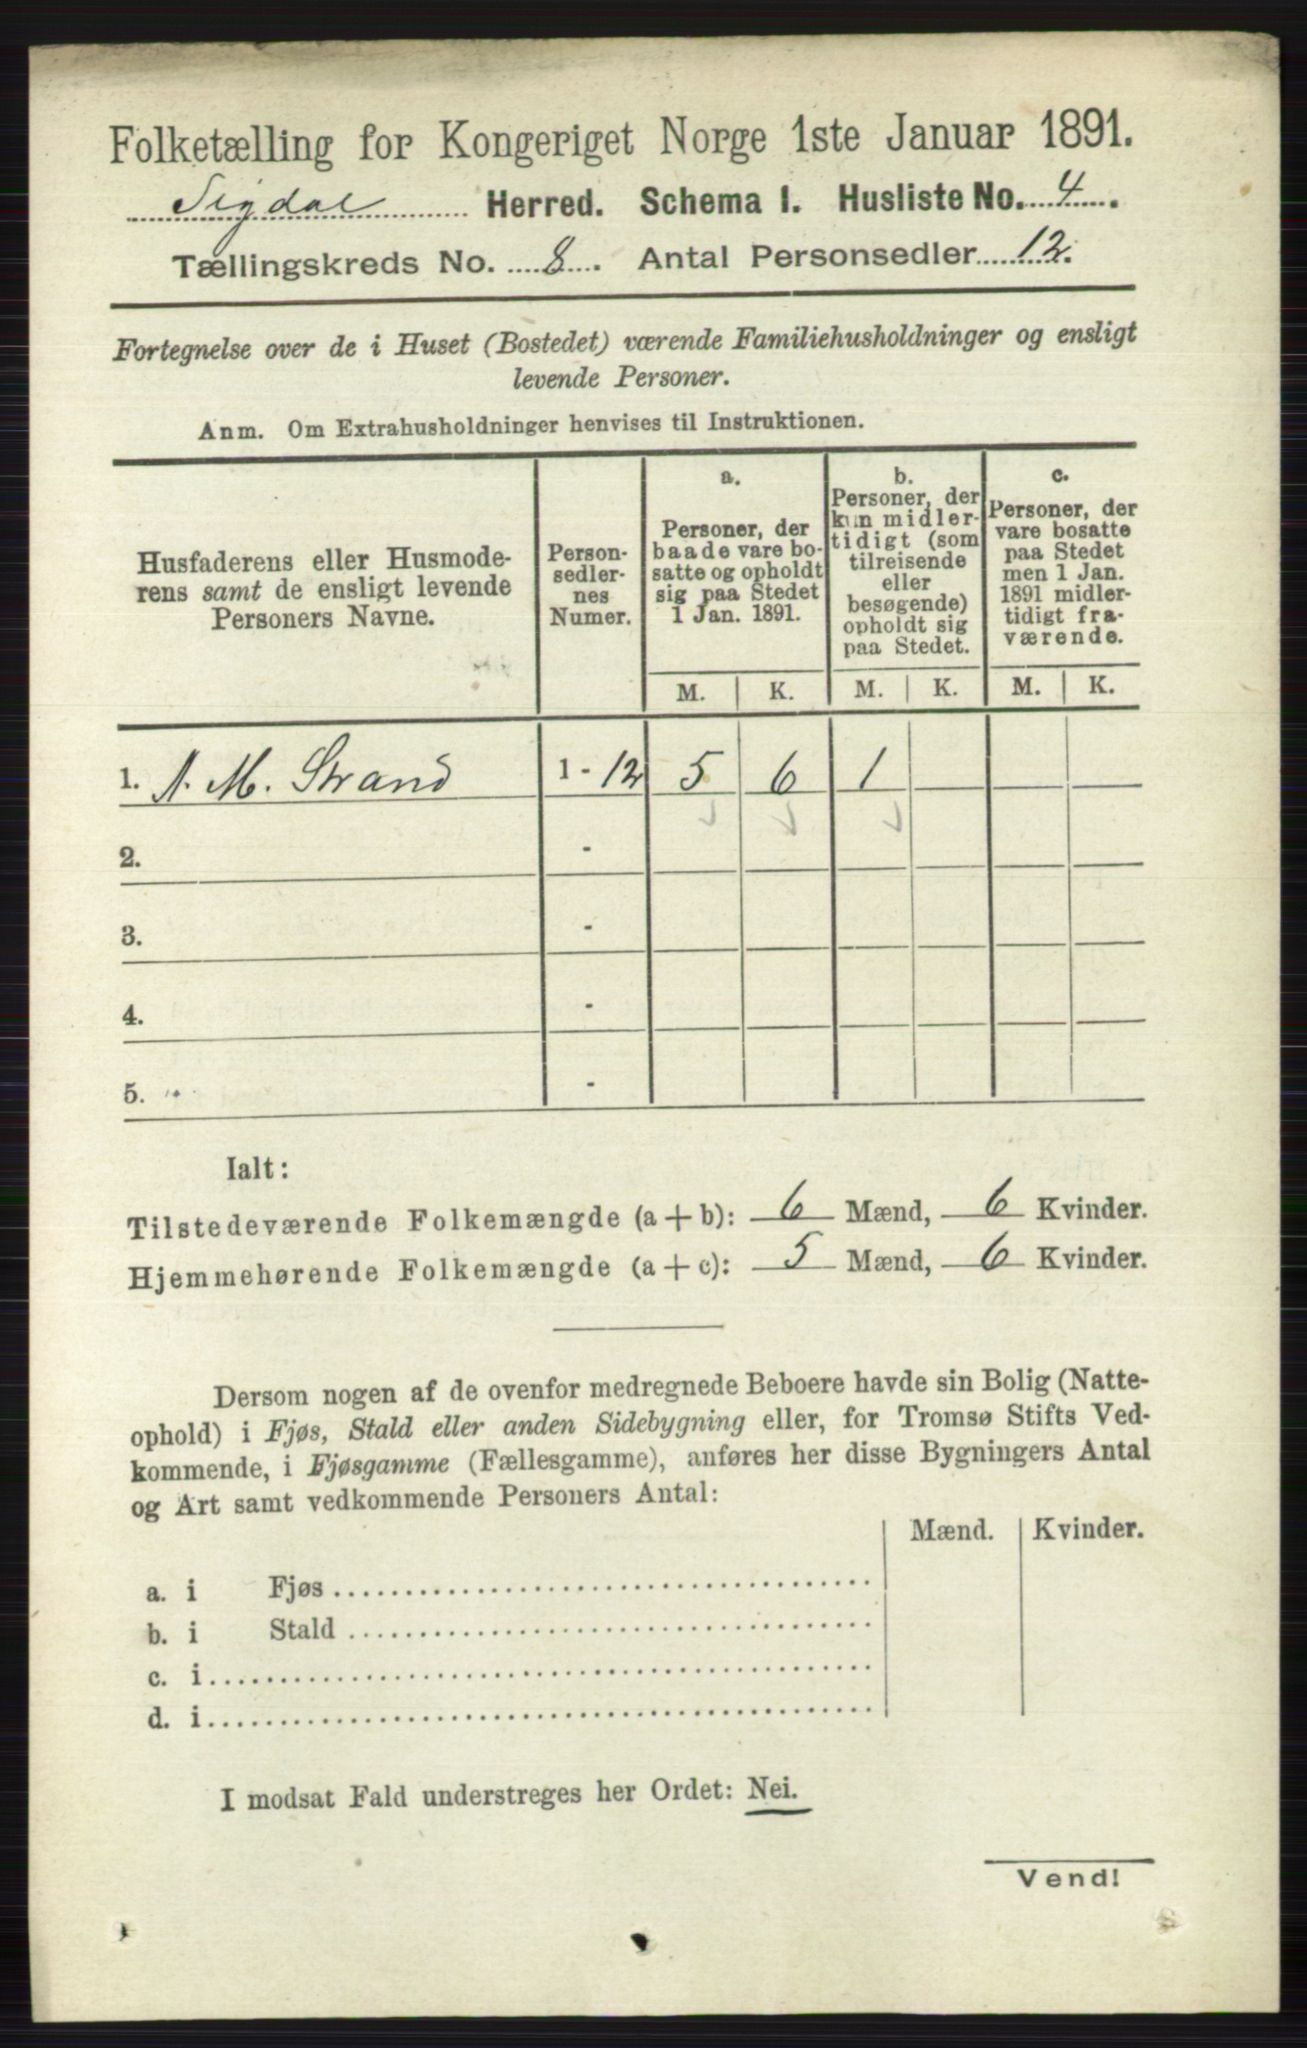 Folketælling for Kongeriget Norge 1ste Januar 1891.
Sigdal Herred. Schema I. Husliste No. 4.
Tællingskreds No. 8. Antal Personsedler 12.
Fortegnelse over de i Huset (Bostedet) værende Familiehusholdninger og ensligt
levende Personer.
Anm. Om Extrahusholdninger henvises til Instruktionen.
Husfaderens eller Husmode-
rens samt de ensligt levende
Personers Navne.
Person-
sedler-
nes
Numer.
a.
Personer, der
baade vare bo-
satte og opholdt
sig paa Stedet
1 Jan. 1891.
b.
Personer, der
kun midler-
tidigt (som
tilreisende
eller
besøgende)
opholdt sig
paa Stedet.
c.
Personer, der
vare bosatte
paa Stedet
men 1 Jan.
1891 midler-
tidigt fra-
værende.
M. K. M. K. M. K.
1. A. M. Strand 1 - 12 5 6 1
2. -
3. -
4. -
5. -
Ialt:
Tilstedeværende Folkemængde (a + b): 6 Mænd, 6 Kvinder.
Hjemmehørende Folkemængde (a + c): 5 Mænd, 6 Kvinder.
Dersom nogen af de ovenfor medregnede Beboere havde sin Bolig (Natte-
ophold) i Fjøs, Stald eller anden Sidebygning eller, for Tromsø Stifts Ved-
kommende, i Fjøsgamme (Fællesgamme), anføres her disse Bygningers Antal
og Art samt vedkommende Personers Antal:
Mænd. Kvinder.
a. i Fjøs
b. i Stald
c. i
d. i
I modsat Fald understreges her Ordet: Nei.
Vend!